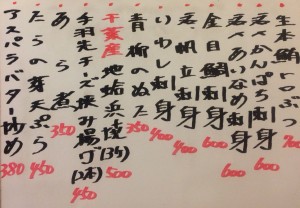 生本鮪とろぶつ 700
活〆かんぱち刺身 600
活〆あいなめ刺身 600
金目鯛刺身 600
活帆立刺身 400
いわし刺身 400
青柳のぬた 350
千葉産地蛤浜焼(3ケ) 500
手羽先チーズ挟み揚げ(2本) 450
あら煮 350
たらの芽天ぷら 450
アスパラバター炒め 380